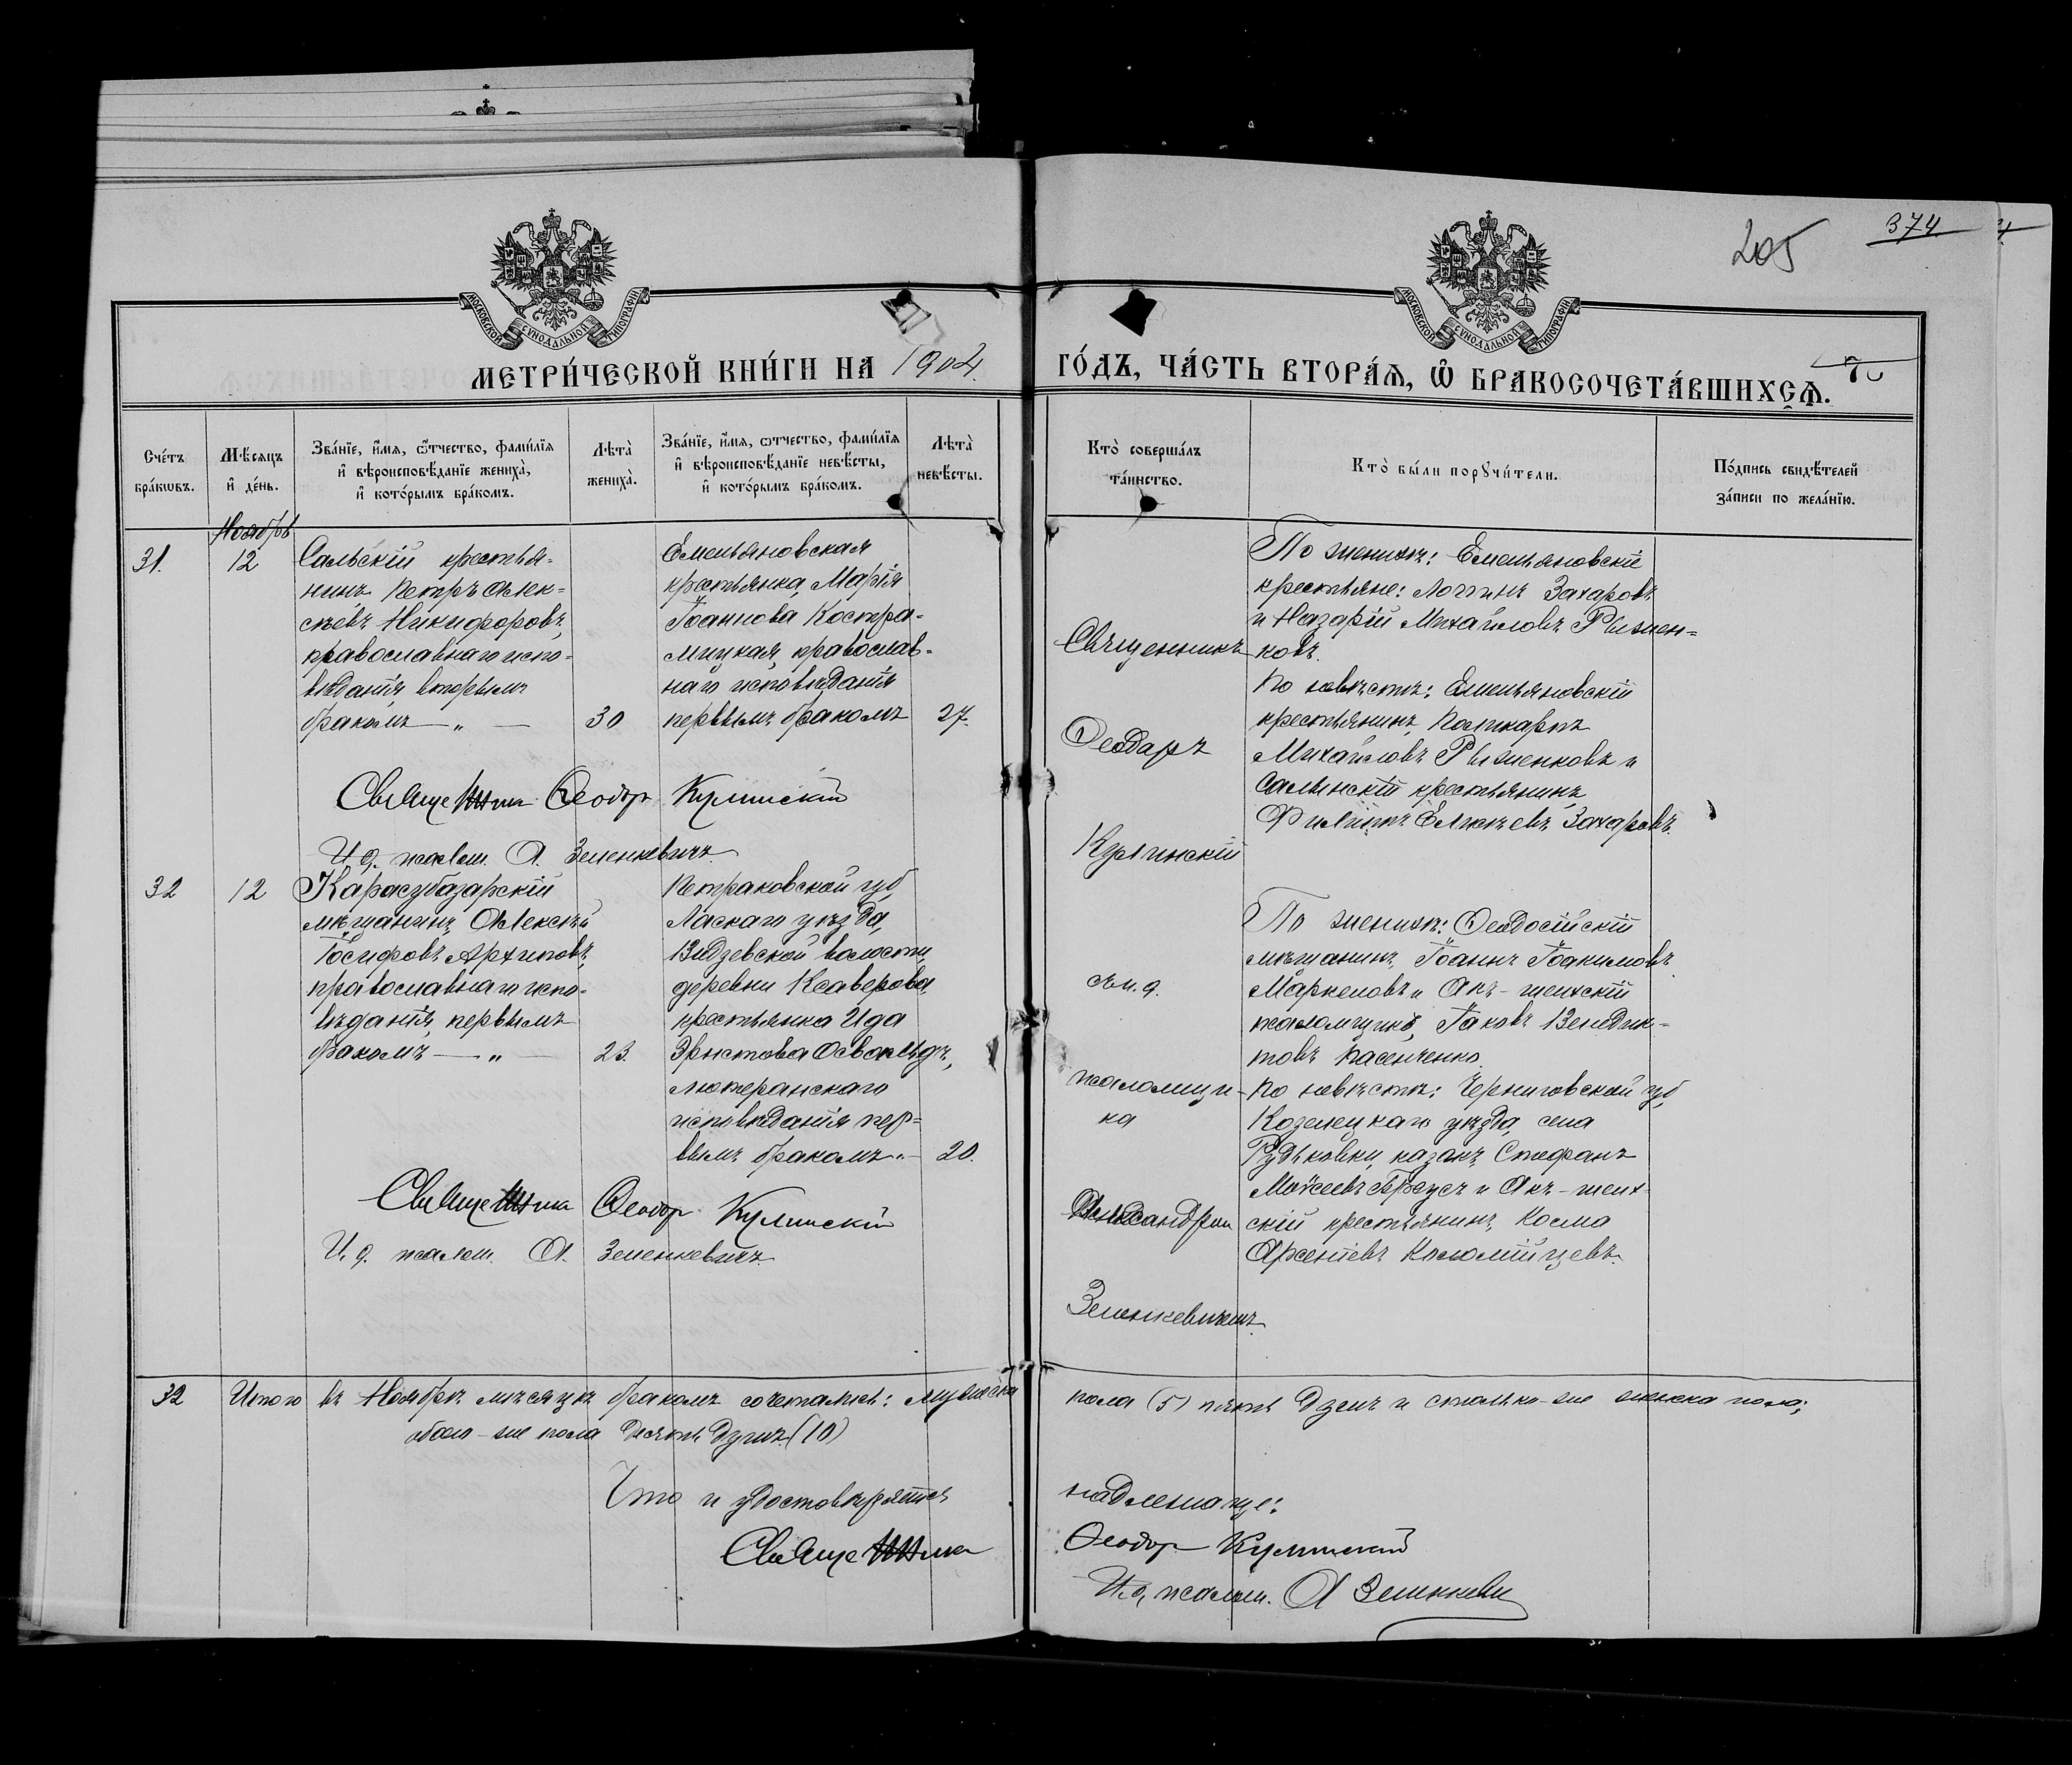 205
374
МОСКОВСКОЙ СУНОДАЛЬНОЙ ТИПОГРАФІИ
МОСКОВСКОЙ СУНОДАЛЬНОЙ ТИПОГРАФІИ
МЕТРИ́ЧЕСКОЙ КНИ́ГИ НА 1904.
ГО́ДЪ, ЧА́СТЬ ВТОРА́Ѧ, Ѡ БРАКОСОЧЕТА́ВШИХСѦ.
Сче́тъ бра́кѡвъ.
Мѣ́сѧцъ и҆ де́нь.
Зва́нїе, и҆́мѧ, ѻ҆́тчество, фами́лїѧ
и҆ вѣроисповѣ́данїе жениха̀,
и҆ кото́рымъ бра́комъ.
Лѣта̀ жениха̀.
Зва́нїе, и҆́мѧ, ѻ҆́тчество, фами́лїѧ
и҆ вѣроисповѣ́данїе невѣ́сты,
и҆ кото́рымъ бра́комъ.
Лѣта̀ невѣ́сты.
Кто̀ соверша́лъ та́инство.
Кто̀ бы́ли порꙋчи́тели.
По́дпись свидѣ́телей
за́писи по жела́нїю.
Ноябрь
31.
12
Сальскій крестья-
нинъ Петръ Алек-
сѣевъ Никифоровъ,
православнаго испо-
вѣданія, вторымъ
бракомъ — „ —
30
Емельяновская
крестьянка, Марія
Іоаннова Костра-
мицкая, православ-
наго исповѣданія
первымъ бракомъ
27.
Священникъ
Ѳеодоръ
Кулинскій
По женихѣ: Емельяновскіе
крестьяне: Логгинъ Захаровъ
и Назарій Михайловъ Рыжен-
ковъ.
По невѣстѣ: Емельяновскій
крестьянинъ, Поликарпъ
Михайловъ Рыженковъ и
Салынскій крестьянинъ
Филиппъ Захаровъ.
Священникъ Ѳеодоръ Кулинскій
И. д. псалом. А. Зеленкевичъ
32
12
Карасубазарскій
мѣщанинъ, Алексѣй
Іосифовъ Архиповъ,
православнаго испо-
вѣданія, первымъ
бракомъ — „ —
23.
Петраковской губ,
Ласкаго уѣзда,
Видзевской волости,
деревни Ксаверова,
крестьянка Ида
Эрнстова Освальдъ,
лютеранскаго
исповѣданія пер-
вымъ бракомъ „ —
20.
съ и. д.
псаломщи-
ка
Александром
Зеленкевичемъ.
По женихѣ: Ѳеодосійскій
мѣщанинъ, Іоаннъ Іоакимовъ
Маркеловъ и Акъ-шеихскій
псаломщикъ, Іаковъ Венедик-
товъ Пасенченко.
По невѣстѣ: Черниговской губ,
Козелецкаго уѣзда, села
Рудьковки, казакъ, Стефанъ
Моѵсеевъ и Акъ-шеих-
скій крестьянинъ, Косма
Арсеніевъ Коломійцевъ.
Священникъ Ѳеодоръ Кулинскій
И. д. псалом. А. Зеленкевичъ
32 Итого въ Ноябрѣ мѣсяцѣ бракомъ сочетались: мужеска
пола (5) пять душъ и столько-же женска пола;
обоего-же пола десять душъ (10)
Что и удостовѣряется
надлежаще:
Священникъ
Ѳеодоръ Кулинскій
И. д. псалом. А Зеленкевич